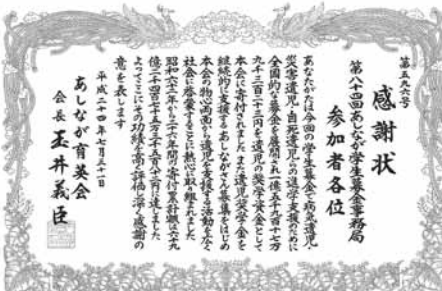 第五九六号
感謝状
第八十四回あしなが学生募金事務局
参加者各位
あなたがたは今回の学生募金で病気遺児・
災害遺児・自死遺児らの進学支援のために
全国的な募金を展開され一億五千九百十七万
九千三百二十三円を遺児の奨学資金として
本会に寄付されました また遺児奨学金を
継続的に支援するあしながさん募集をはじめ
本会の物心両面から遺児を支援する活動を広く
社会に啓蒙することに熱心に取り組まれました
昭和六十二年から二十六年間の寄付累計額は六十九
億二千四百七十五万三千六百八十六円に達しました
よってここにその功績を高く評価し深く感謝の
意を表します
平成二十四年七月三十一日
あしなが育英会
会長 玉井義臣